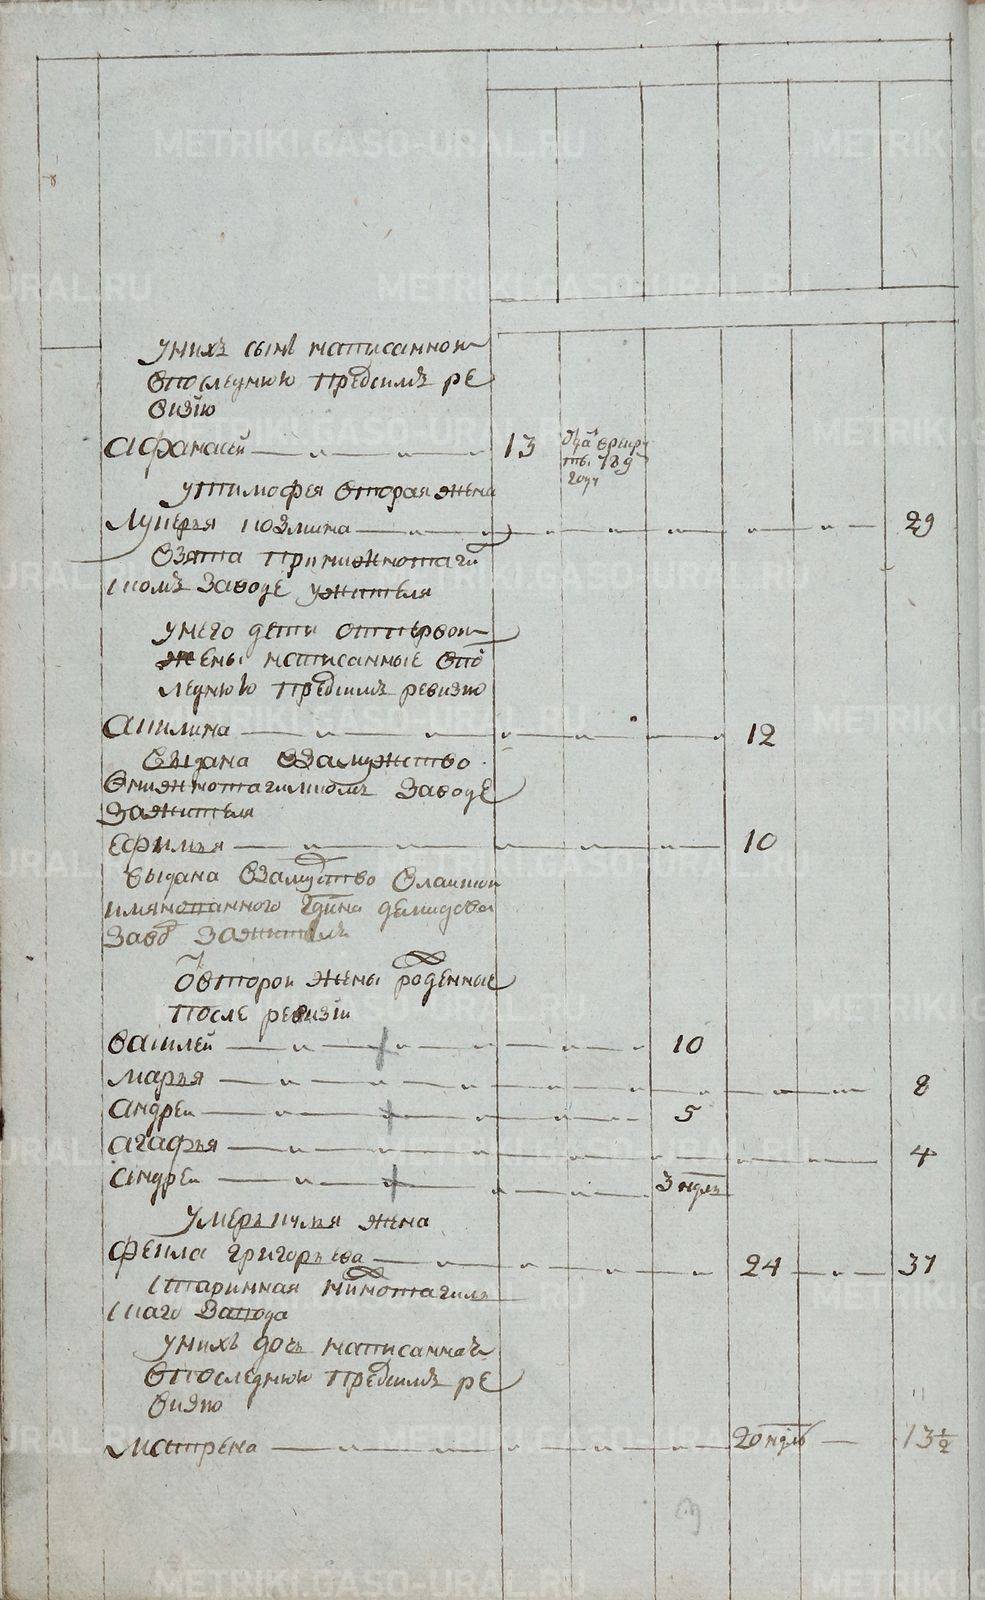 у нихъ сынъ написанной
впоследнюю предсимъ ре
визiю
Афанасей 13 отданъ врекру
ты 789
году
у Тимофея вторая жена
Лукерья Козмина 29
взята при нижнотаги
скомъ заводе у жителя
у него дети отпервой
жены написанные впо
леднюю предсимъ ревизию
Акилина 12
выдана взамужство
внижнотагилскомъ заводе
за жителя
Ефимья 10
выдана взамуство
имянованного гдина демидова
заво за жителя
от второй жены рожденные
после ревизiи
Василей 10
Марья 8
Андрей 5
Агафья 4
Андрей 3 ндль
Умеръ
жена
Фекла Григорьева 24 37
старинная нижнотагил
скаго завода
у нихъ дочь написанная
впоследнюю предсимъ ре
визию
Матрена 20 ндль 13½
METRIKI.GASO-URAL.RU